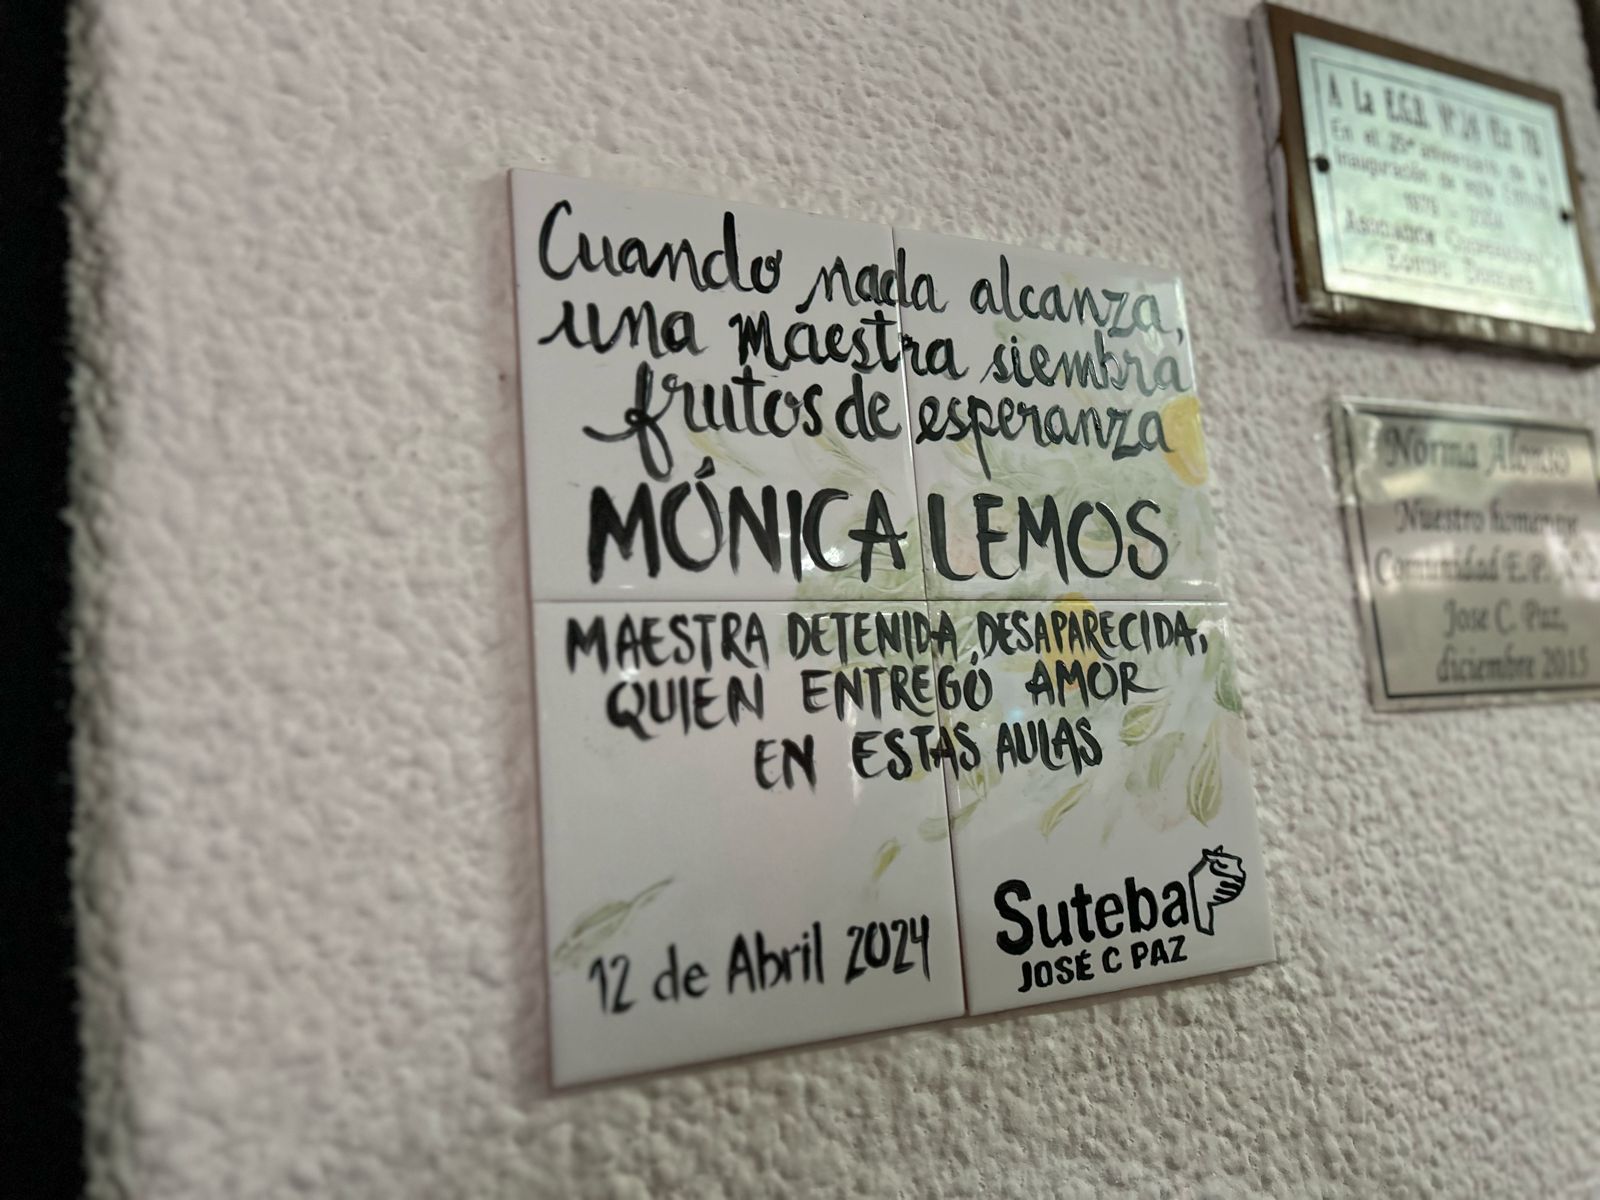 Cuando nada alcanza,
una maestra siembra
frutos de esperanza
MÓNICA LEMOS
MAESTRA DETENIDA, DESAPARECIDA,
QUIEN ENTREGÓ AMOR
EN ESTAS AULAS
12 de Abril 2024
Suteba
JOSÉ C PAZ
A La E.G.B. Nº
En el 25º aniversario de la
inauguración de este
Norma Alonso
Nuestro homenaje
Comunidad E.P.
Jose C. Paz,
diciembre 2015